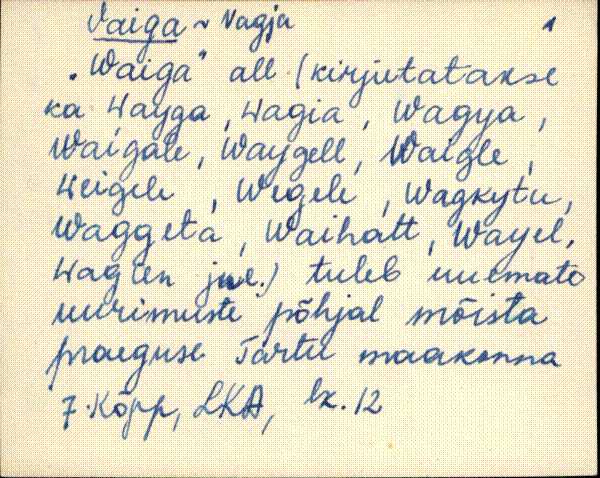 Vaiga ~ Vagja 1
„Waiga" all (kirjutatakse
ka Wayga, Wagia, Wagya,
Waigale, Waygell, Waigle,
Weigele, Wegele, Wagkytu,
Waggeta, Waihatt, Wayel,
Wagien jne.) tuleb uuemate
uurimuste põhjal mõista
praeguse Tartu maakonna
J. Kõpp, LKA, lk. 12